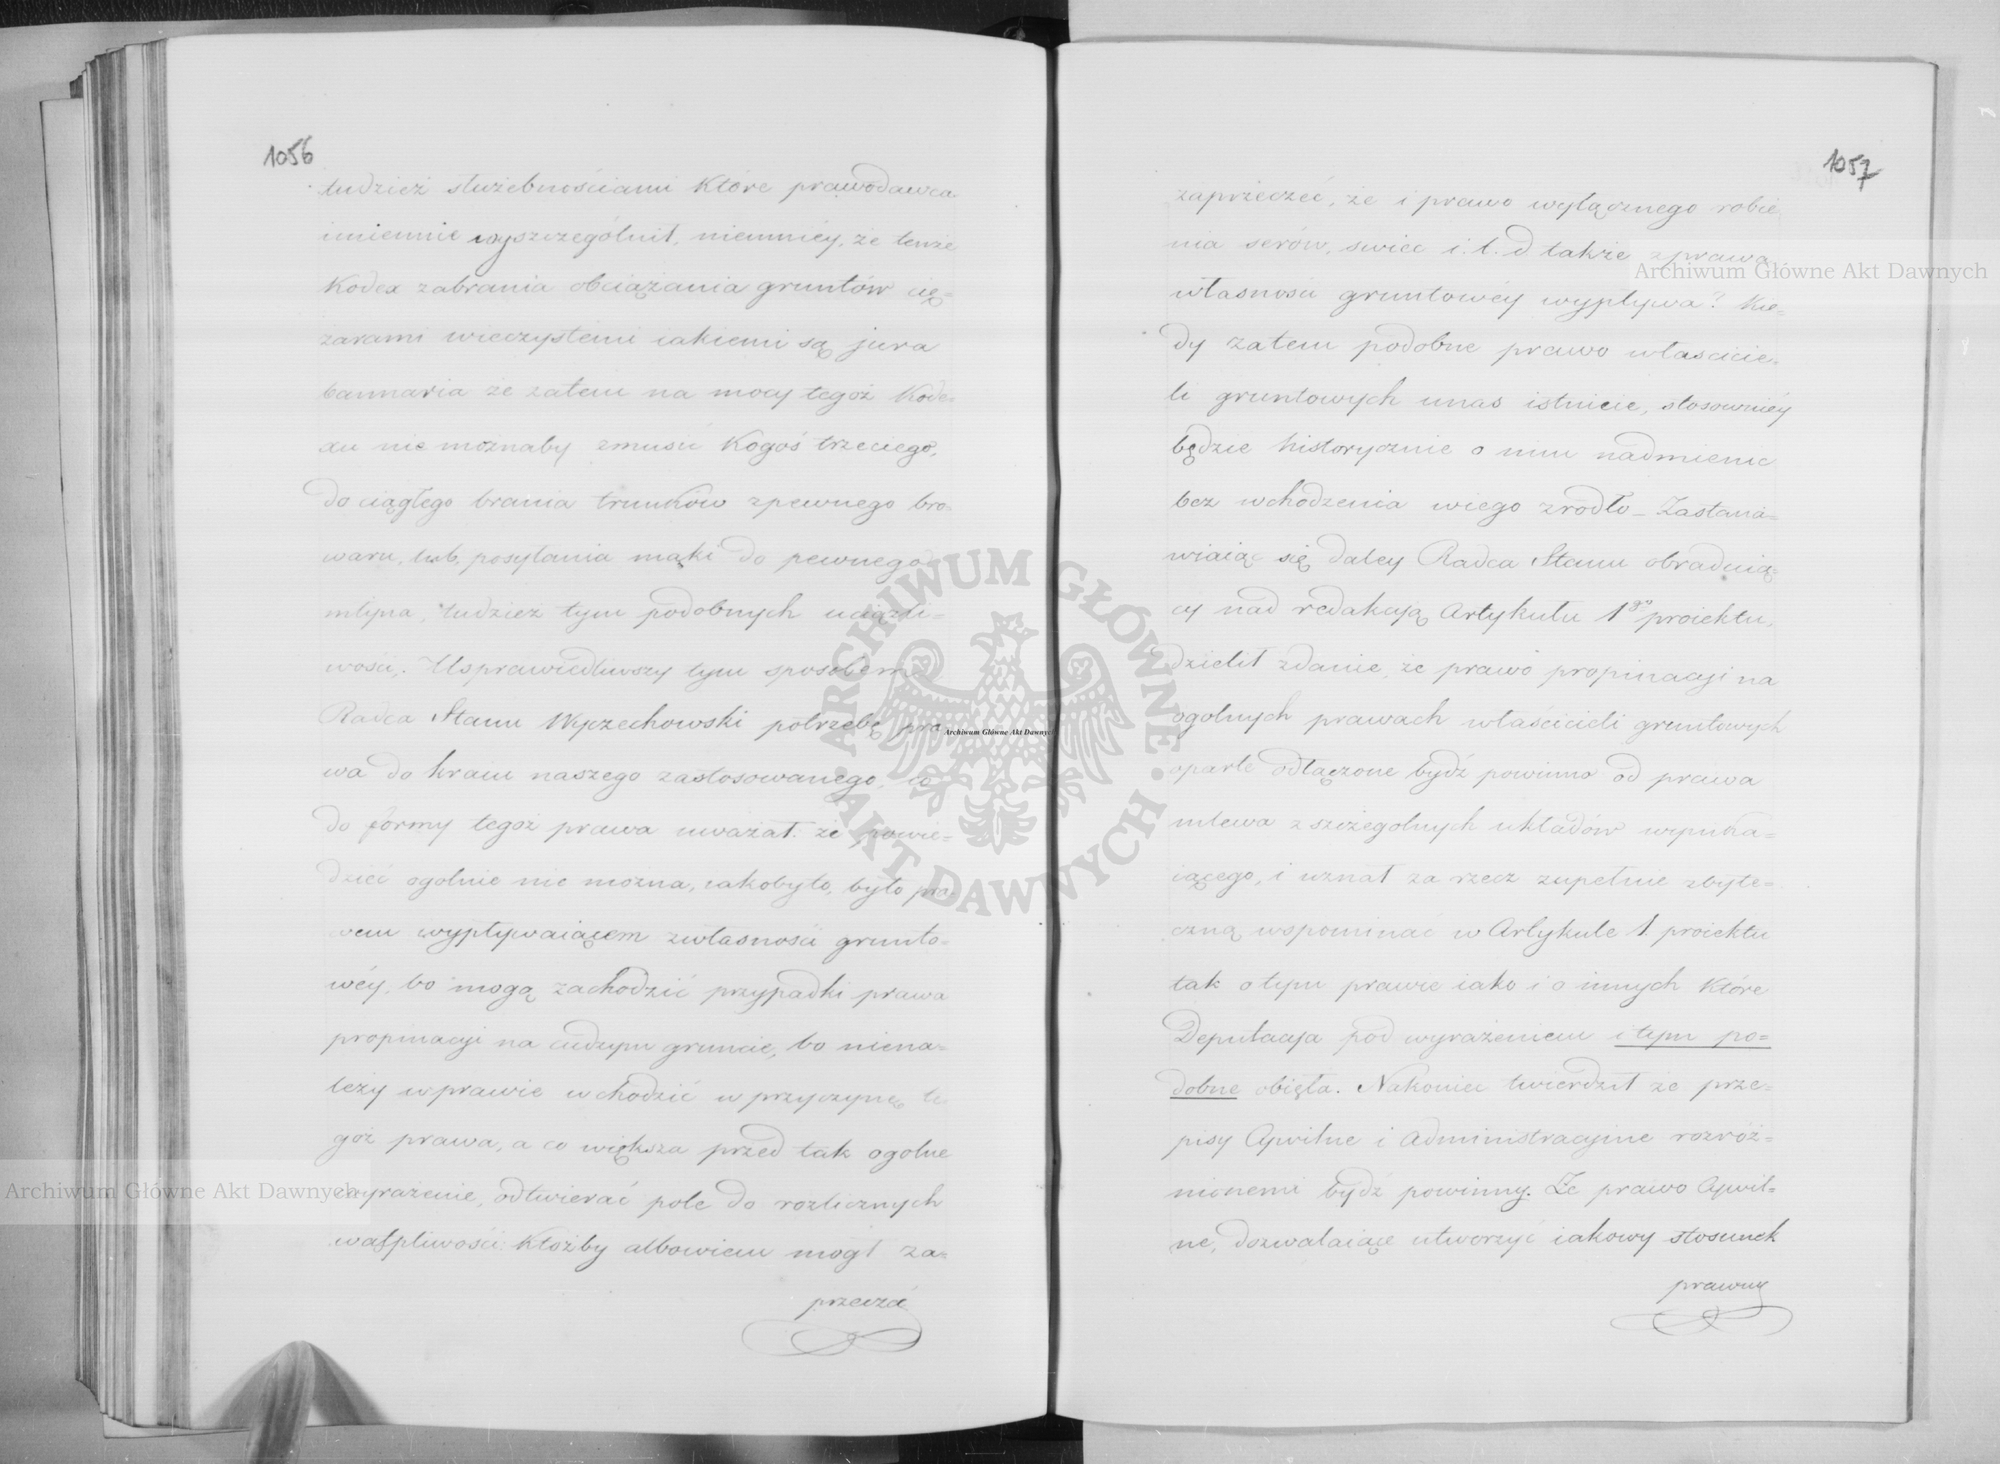 1056
tudzież służebnościami które prawodawca
imiennie wyszczególnił, niemniéy, że tenże
Kodex zabrania obciążania gruntów cię=
żarami wieczystemi iakiemi są jura
bannaria że zatem na mocy tegoż Kode=
xu nie możnaby zmusić kogoś trzeciego,
do ciągłego brania trunków zpewnego bro=
waru, lub posyłania mąki do pewnego
młyna, tudzież tym podobnych uciążli=
wości. Usprawiedliwszy tym sposobem
Radca Stanu Wyczechowski potrzebę pra
wa do kraiu naszego zastosowanego, co
do formy tegoż prawa uważał: że powie=
dzieć ogolnie nie można, iakobyto, było pra
wem wypływaiącem zwłasności grunto=
wéy, bo mogą zachodzić przypadki prawa
propinacyi na cudzym gruncie, bo niena=
leży wprawie wchodzić w przyczynę te
goż prawa, a co większa przed tak ogolne
wyrażenie, odtwierać pole do rozlicznych
wątpliwości. Któżby albowiem mogł za=
przeczć
1057
zaprzeczéć, że i prawo wyłącznego robie
nia serów, swiec i. t. d także z prawa
własności gruntowéy wypływa? Kie=
dy zatem podobne prawo właścicie=
li gruntowych unas istnieie, stosowniéy
będzie historycznie o nim nadmienić
bez wchodzenia wiego zrodło_ Zastana=
wiaiąc się daley Radca Stanu obraduią=
cy nad redakcyą Artykułu 1go proiektu,
dzielił zdanie, że prawo propinacyi na
ogolnych prawach właścicieli gruntowych
oparte odłączone bydź powinno od prawa
mlewa z szczegolnych układów wynika=
iącego, i uznał za rzecz zupełnie zbyte=
czną wspominać w Artykule 1 proiektu
tak otym prawie iako i o innych które
Deputacya pod wyrażeniem i tym po=
dobne obięła. Nakoniec twierdził że prze=
pisy Cywilne i Administracyine rozróż=
nionemi bydź powinny. Że prawo Cywil=
ne, dozwalaiące utworzyć iakowy stosunek
prawny
Archiwum Główne Akt Dawnych
Archiwum Główne Akt Dawnych
Archiwum Główne Akt Dawnych
ARCHIWUM GŁÓWNE
AKT DAWNYCH